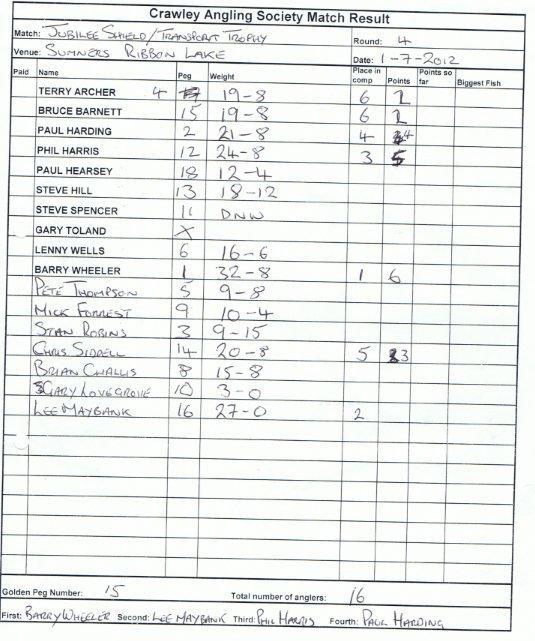 Crawley Angling Society Match Result
Match: JUBILEE SHIELD/TRANSPORT TROPHY Round: 4
Venue: SUMNERS RIBBON LAKE Date: 1-7-2012
Paid Name Peg Weight Place in comp Points Points so far Biggest Fish
TERRY ARCHER 4 19-8 6
BRUCE BARNETT 15 19-8 6
PAUL HARDING 2 21-8 4 4
PHIL HARRIS 12 24-8 3 5
PAUL HEARSEY 18 12-4
STEVE HILL 13 18-12
STEVE SPENCER 11 DNW
GARY TOLAND X
LENNY WELLS 6 16-6
BARRY WHEELER 1 32-8 1 6
PETE THOMPSON 5 9-8
MICK FORREST 9 10-4
STAN ROBINS 3 9-15
CHRIS SIDDELL 14 20-8 5 3
BRIAN CHALLIS 8 15-8
GARY LOVEGROVE 10 3-0
LEE MAYBANK 16 27-0 2
Golden Peg Number: 15 Total number of anglers: 16
First: BARRY WHEELER Second: LEE MAYBANK Third: PHIL HARRIS Fourth: PAUL HARDING